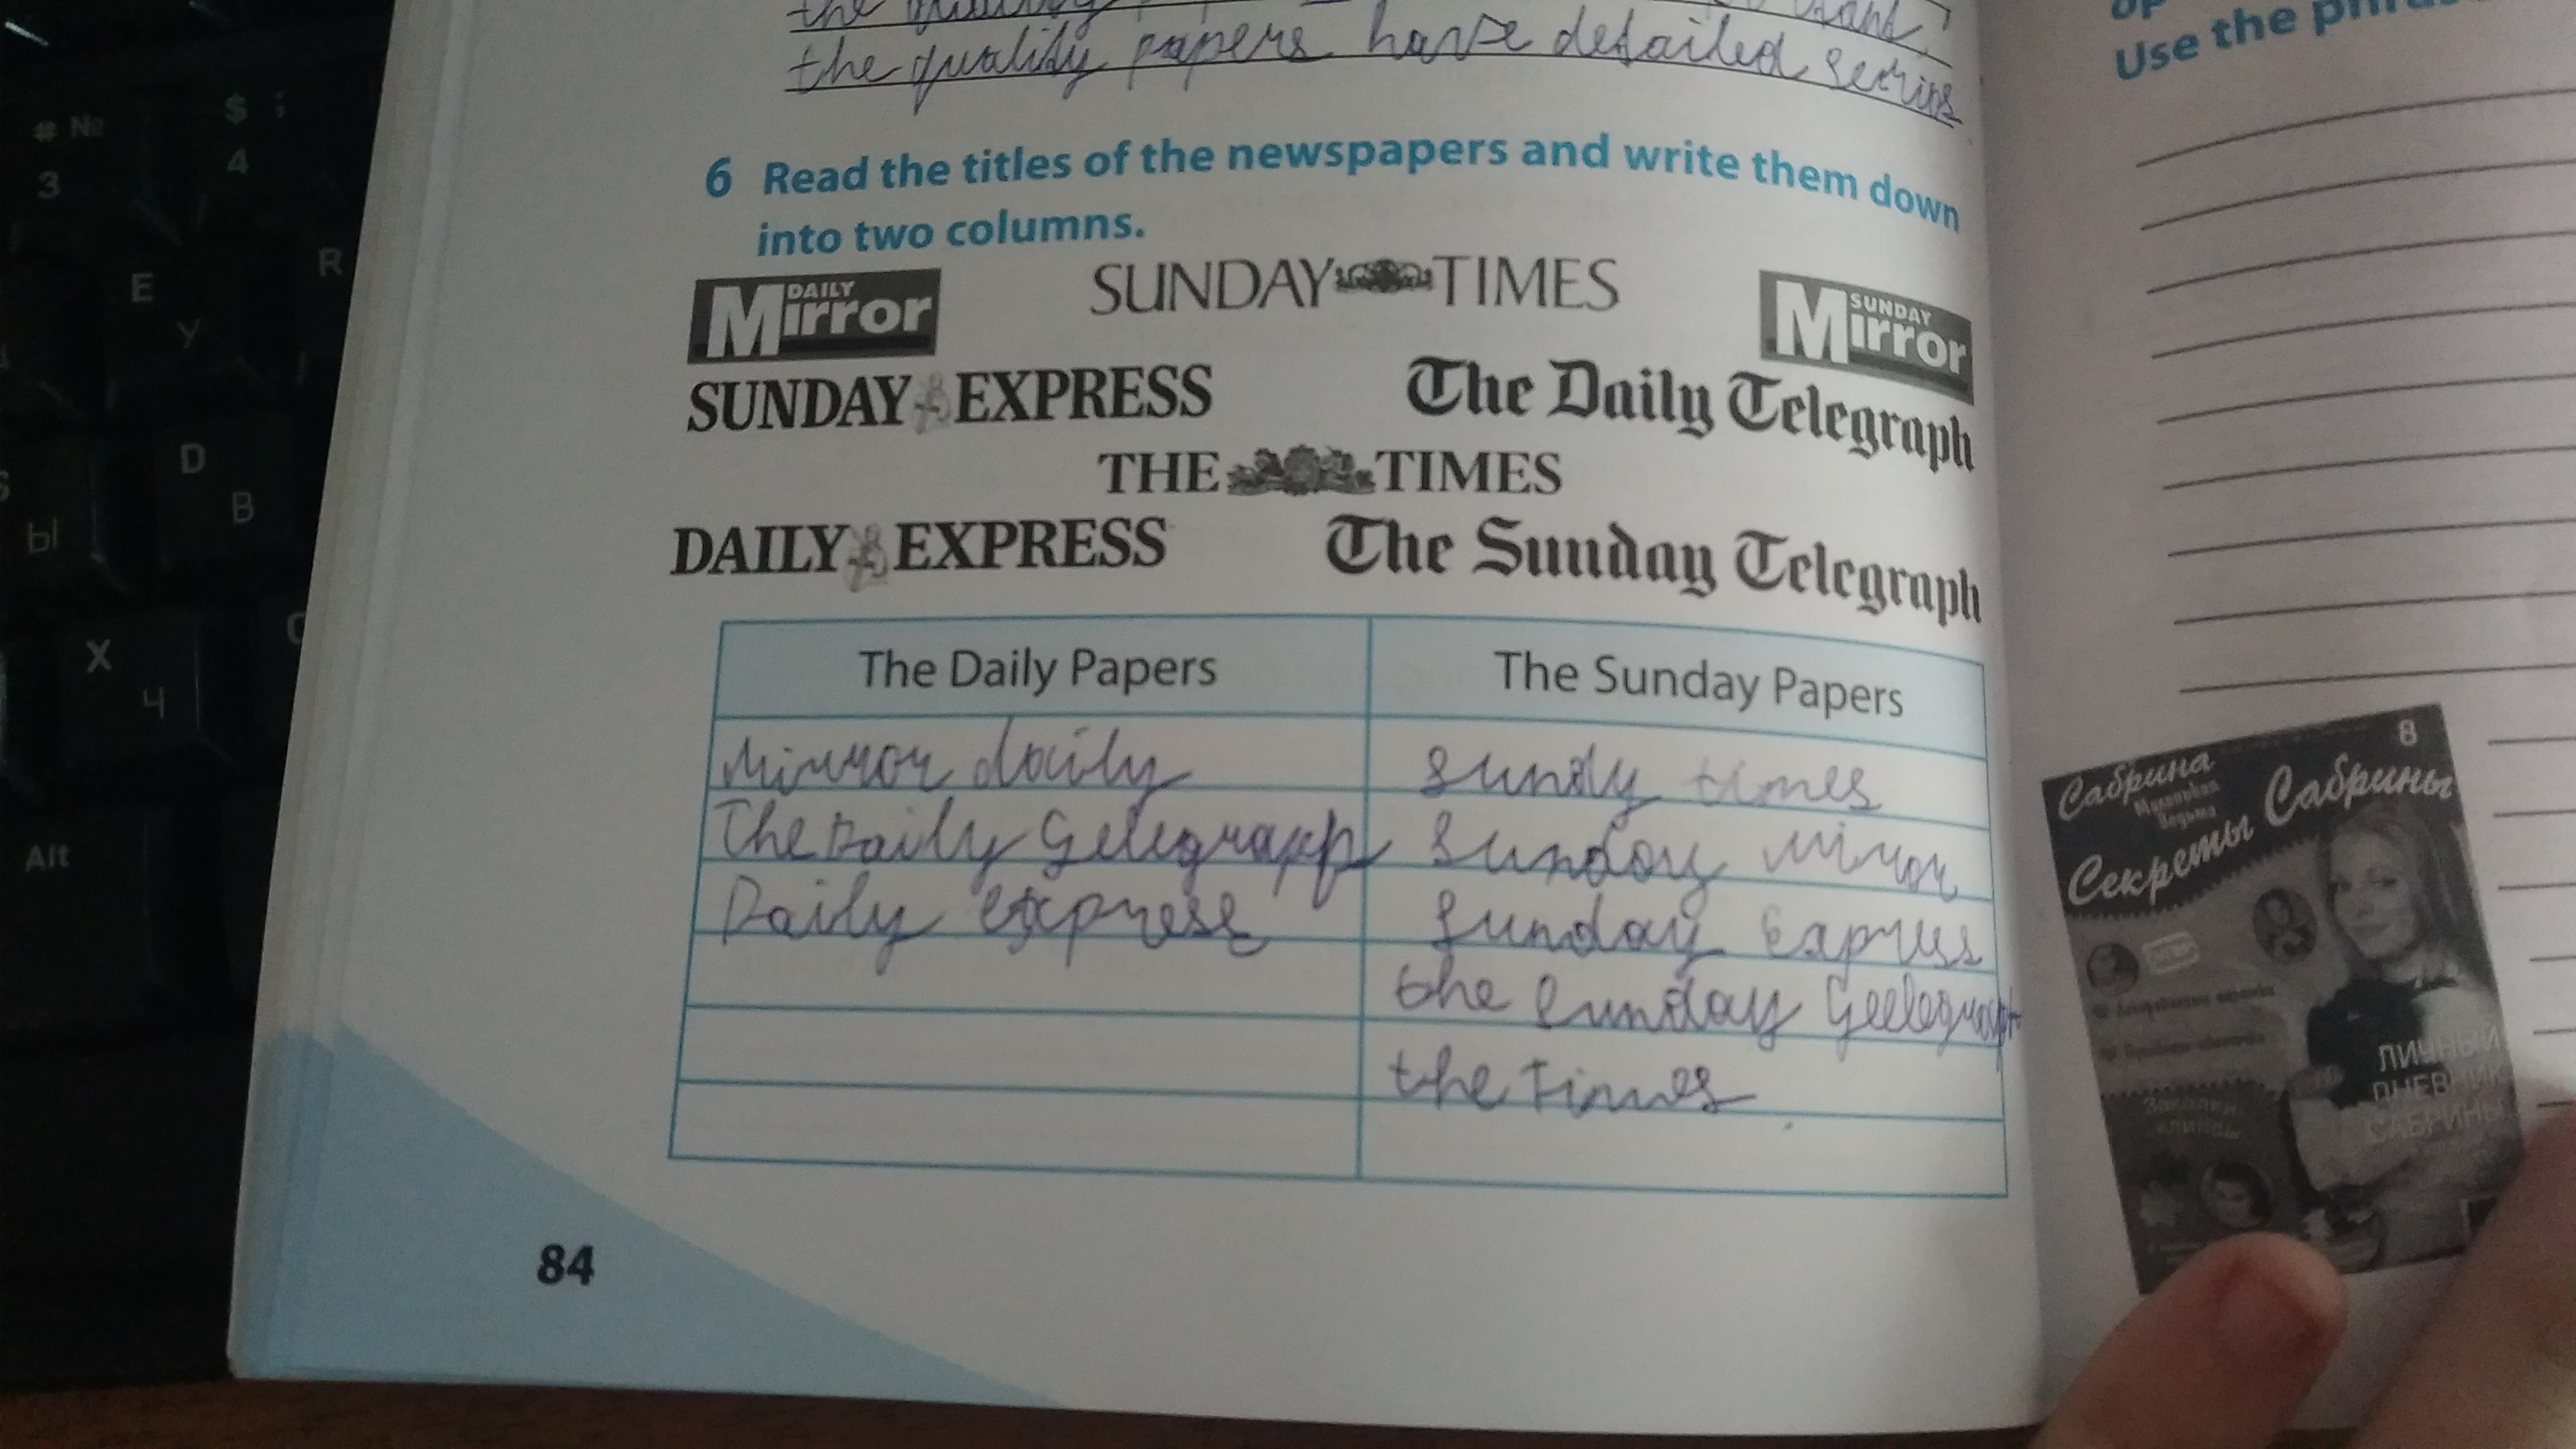 the quality
the quality papers have detailed series
6 Read the titles of the newspapers and write them down
into two columns.
DAILY Mirror
SUNDAY TIMES
SUNDAY Mirror
SUNDAY EXPRESS
The Daily Telegraph
THE TIMES
DAILY EXPRESS
The Sunday Telegraph
The Daily Papers The Sunday Papers
Mirror daily sundy times
The Daily Gelegrapp Sunday mirror
Daily express Sunday Express
the Sunday Geelegraph
the Times
84
Use the
8
Сабрина
Маленькая
Ведьма
Секреты Сабрины
ЛИЧНЫЙ
ДНЕВНИК
САБРИНЫ
# №
3
$ ;
4
E
У
R
D
В
Ы
X
Ч
Alt